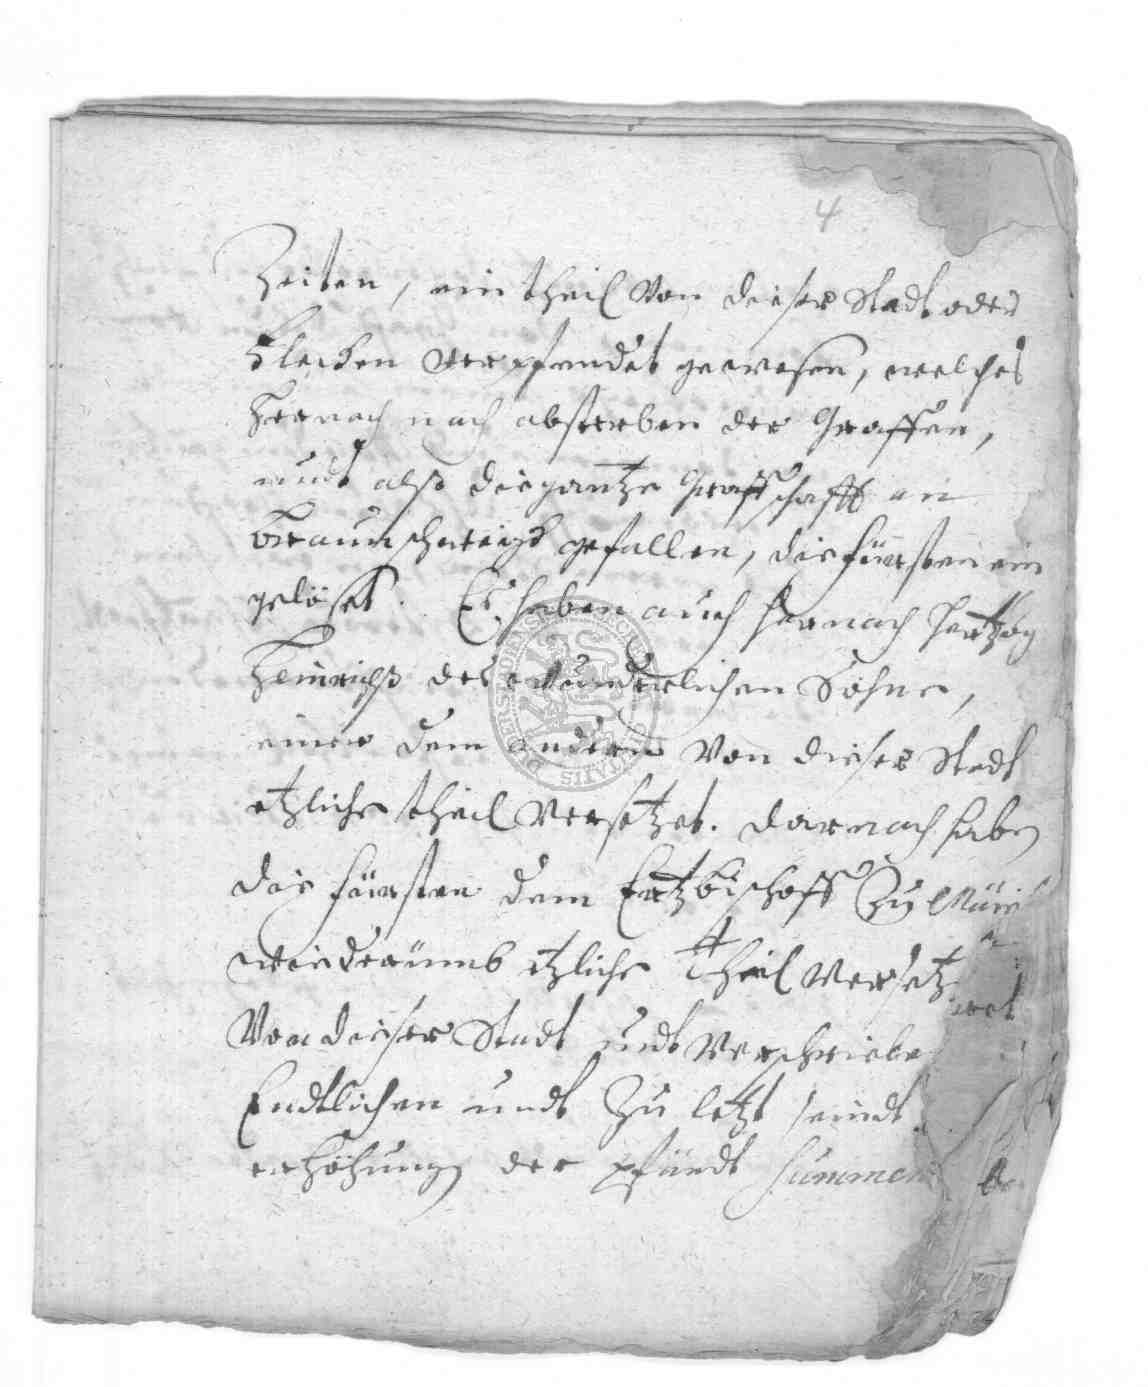 4
Zeiten, ein theil Von dieser Stadt oder
Flecken verpfendet gewesen, welches
hernach nach absterben der Graffen,
undt alß die gantze Graffschafft an
Braunschweigk gefallen, die fürsten ein
gelöset. Es haben auch hernach Hertzog
Heinrichß des wunderlichen Söhne,
einer dem andern Von dieser Stadt
etzliche theil Versetzet. darnach haben
die fürsten dem Ertzbischoff Zu
wiederümb etzliche theil
Von dieser Stadt undt
Endtlichen undt Zu letzt seindt
erhöhung der pfandt Summen